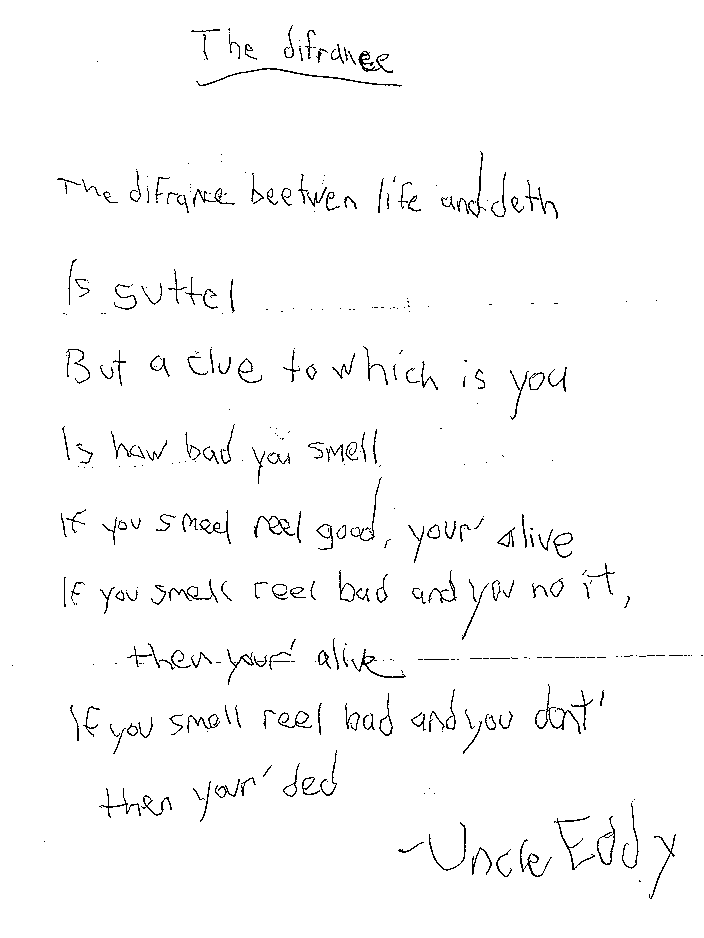 The difrance
The difrance beetwen life and deth
Is suttel
But a clue to which is you
Is how bad you smell
If you smeel reel good, your' alive
If you smell reel bad and you no it,
then your' alive
If you smell reel bad and you dont'
then your' ded
-Uncle Eddy